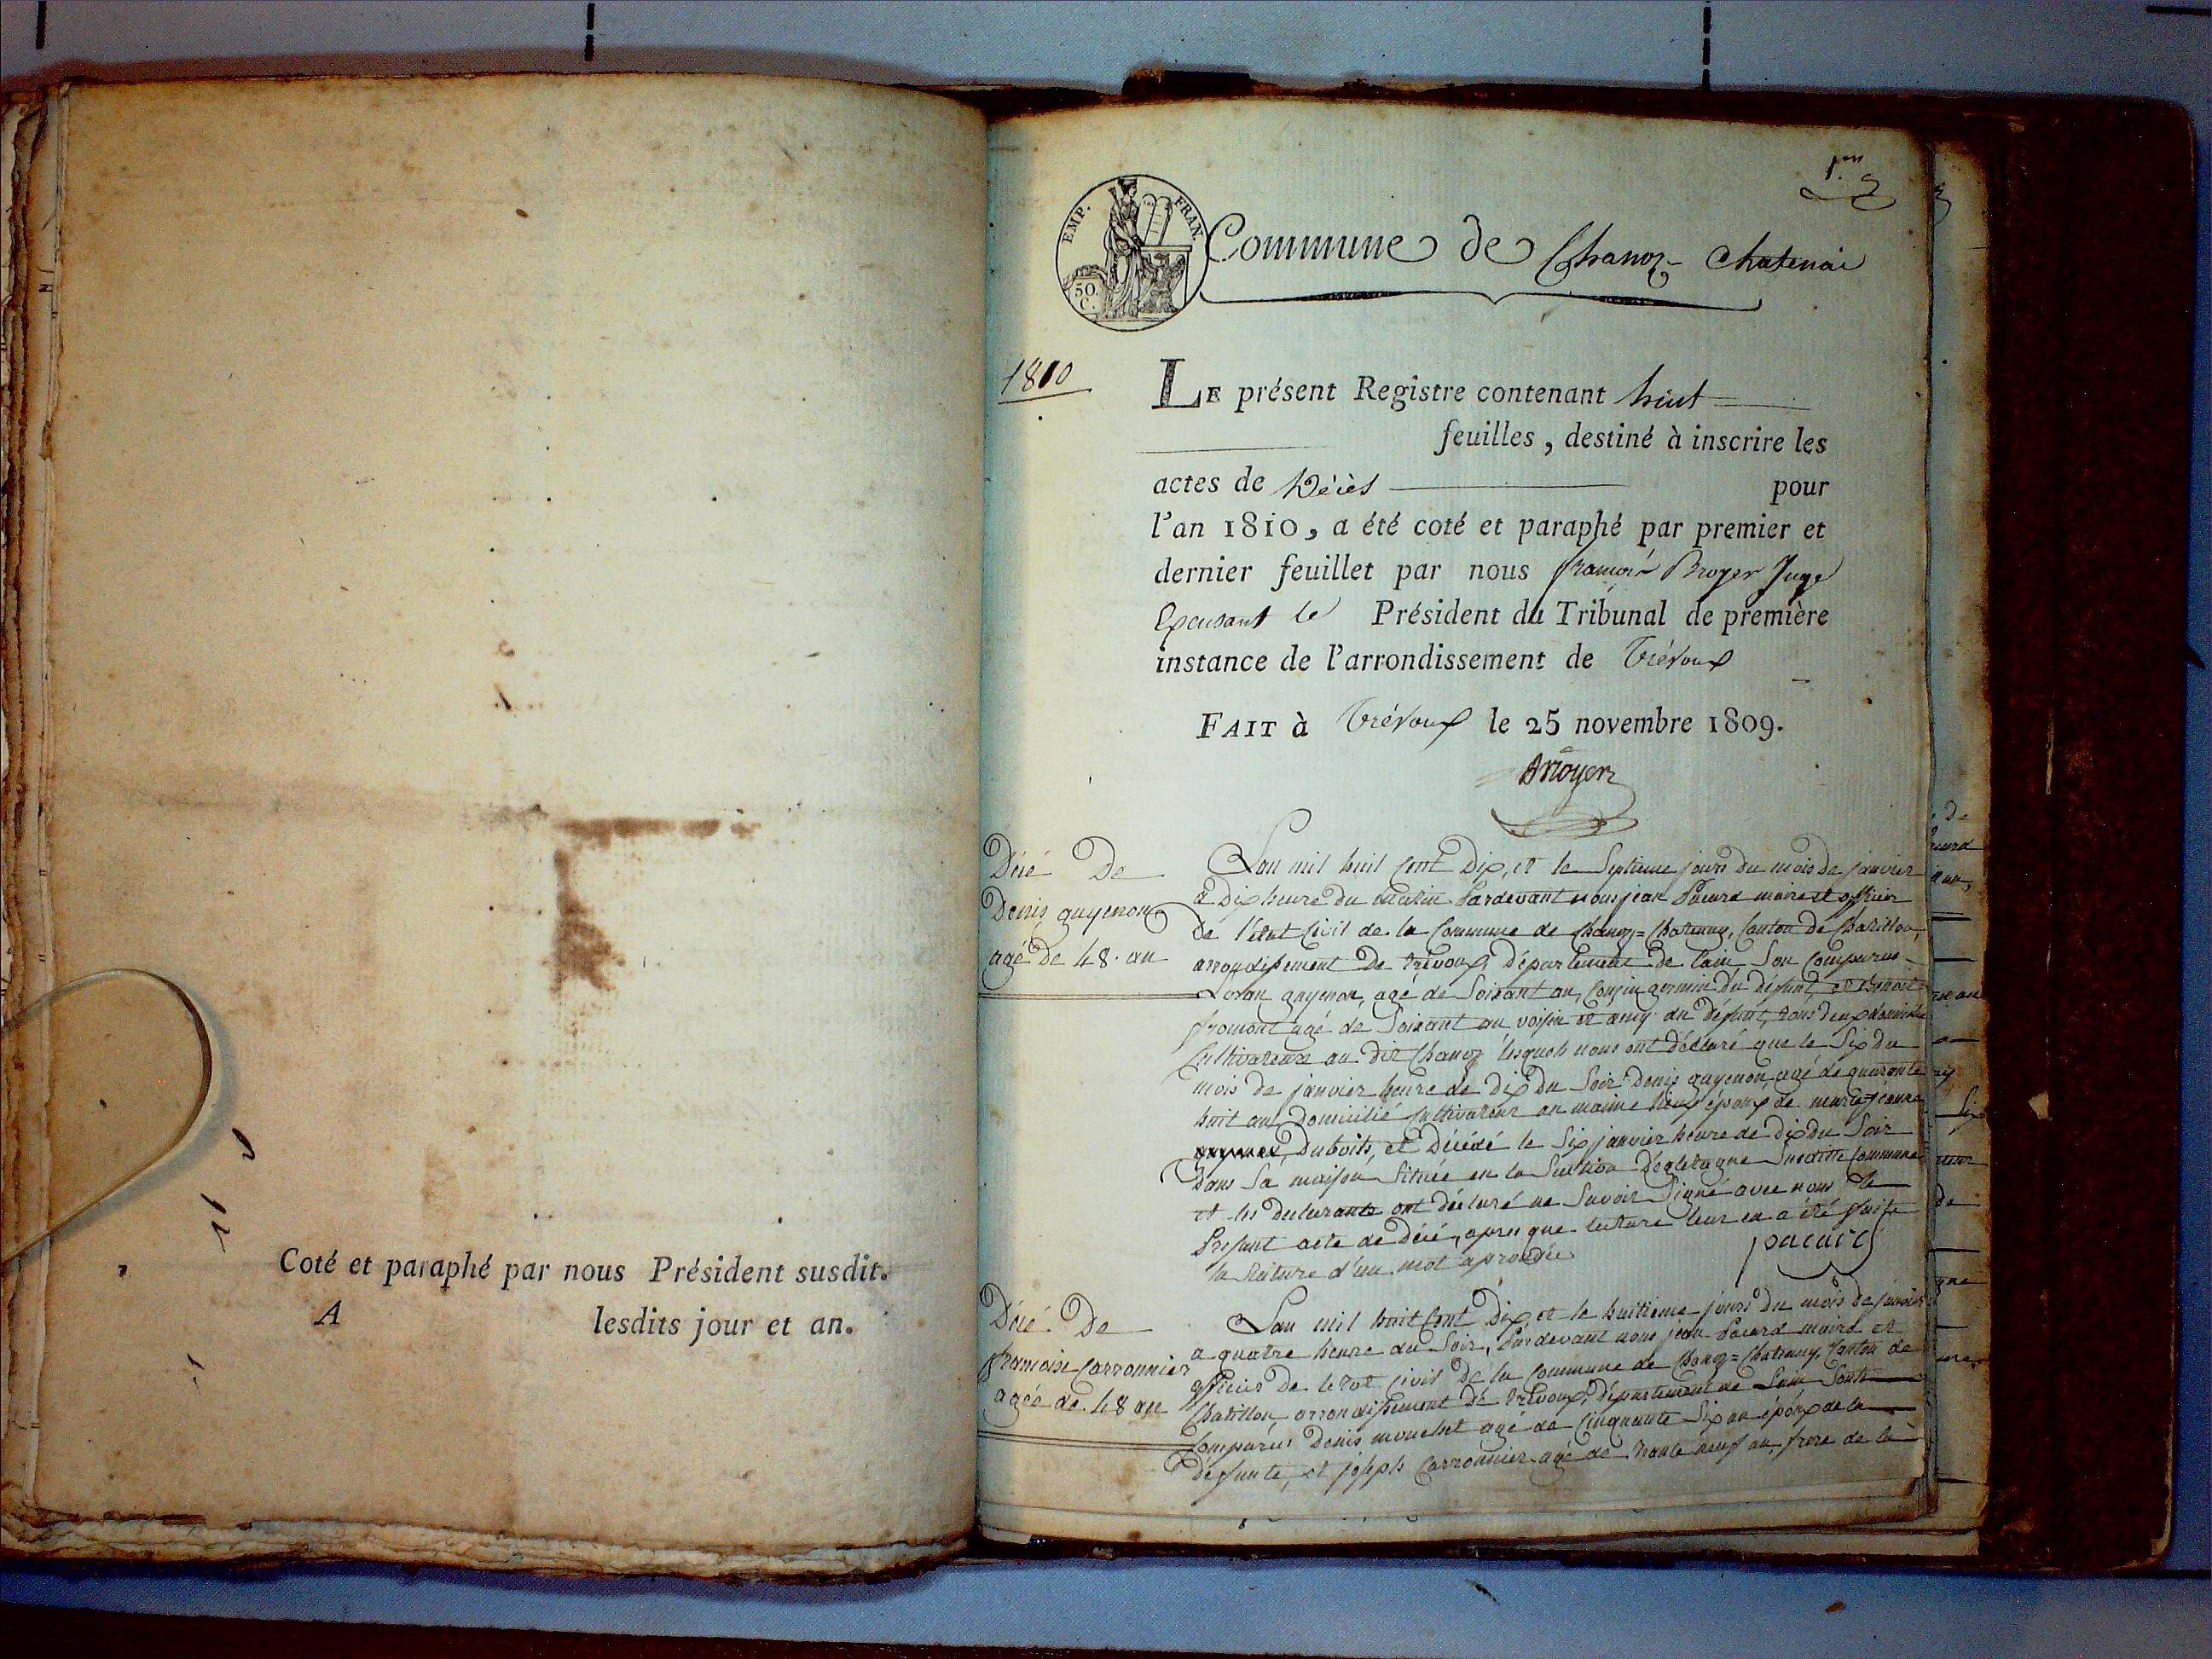 Coté et paraphé par nous Président susdit.
A lesdits jour et an.
1.er
EMP. FRAN.
50.
C.
Commune de Chanoz-Chatenai
1810
LE présent Registre contenant huit
feuilles, destiné à inscrire les
actes de Décès pour
l'an 1810, a été coté et paraphé par premier et
dernier feuillet par nous françois Broyer Juge
Exposant le Président du Tribunal de première
instance de l'arrondissement de Trévoux
FAIT à Trévoux le 25 novembre 1809.
Broyer
Décé De
Denis guyenon
agé de 48. an
Lan mil huit Cent Dix, et le Septieme jours du mois de janvier
a Dix heure du matin Pardevant nous jean Pacard maire et officier
de l'état Civil de la Commune de Chanoz=Chatenay, Canton de Chatillon,
arrondissement De trévoux, département de lain Son Comparus
guyenon, agé de Soixant an, Cousin germin du défunt, et Benoit
fromont agé de Soixant an voisin et amy du défunt, tous deux domicilié
Cultivateurs au dit Chanoz lesquels nous ont déclaré que le Six du
mois de janvier heure de dix du Soir Denis guyenon, agé de quarante
huit an Domicilié Cultivateur au maime lieux époux de marie jéanne
Duboits, et Décédé le Six janvier heure de dix du Soir
Dans Sa maison Située en la Section Susditte Commune
et les declarants ont déclaré ne Savoir Signé avec nous le
Présant acte de décé, apres que lecture leur en a été faitte
la rature d'un mot aprouvée
pacard
Décé De
francoise Carronnier
agée de 48 an
Lan mil huit Cent Dix et le huitieme jours du mois de janvier
a quatre heure du Soir, Pardevant nous jean Pacard maire et
officier De letat Civil De la Commune de Chanoz=Chatenay, Canton de
Chatillon, arrondissement de trévoux, département de Lain Sont
Comparus Denis mouchet agé de Cinquante Six an époux de la
défunte, et joseph Carronnier agé de trante neuf an, frere de la